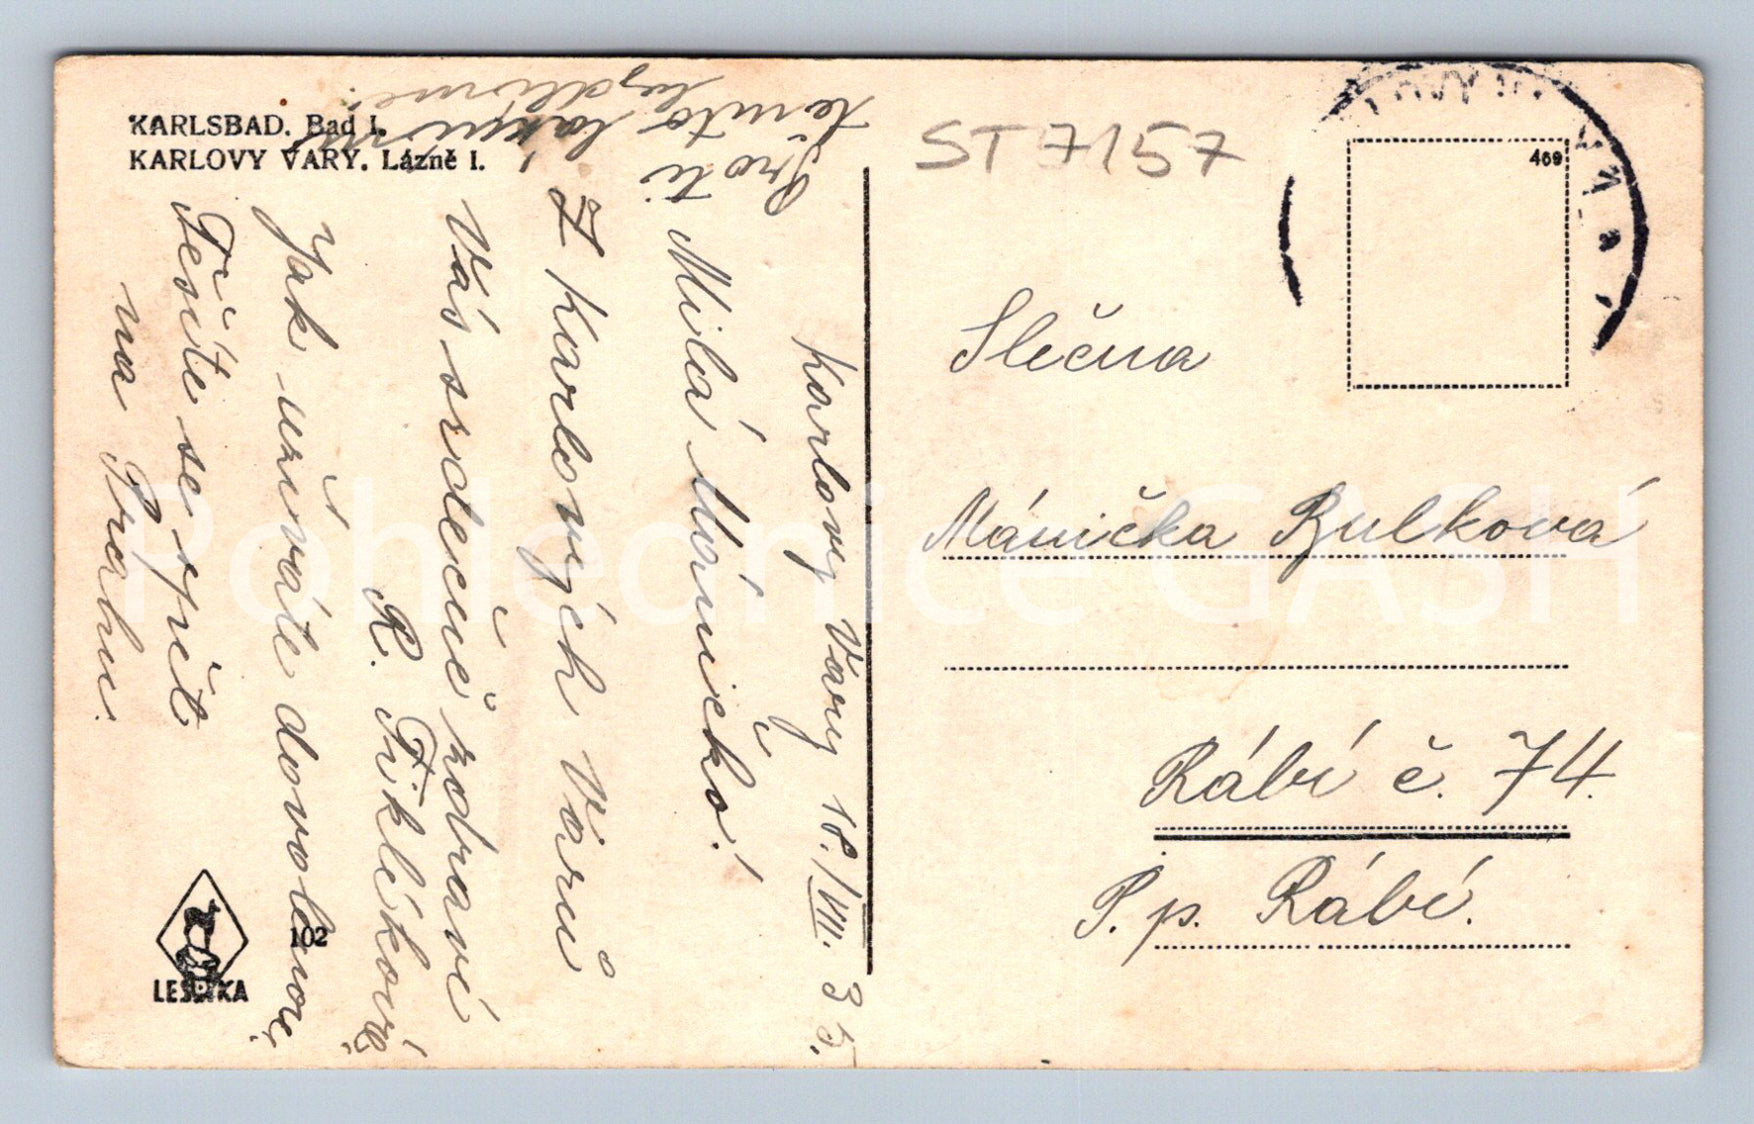 KARLSBAD. Bad I.
KARLOVY VARY. Lázně I.
ST 7157
469
Karlovy Vary 18./VII. 35.
Milá Máničko!
Z Karlových Varů
Vás srdečně zdraví
R. Fiklíková
Jak užíváte dovolenou?
Těšíte se zpět
na Prahu.
Proti
tomuto
Slečna
Mánička Bulková
Rábí č. 74.
P. p. Rábí.
102
LESTKA
Pohlednice GASH